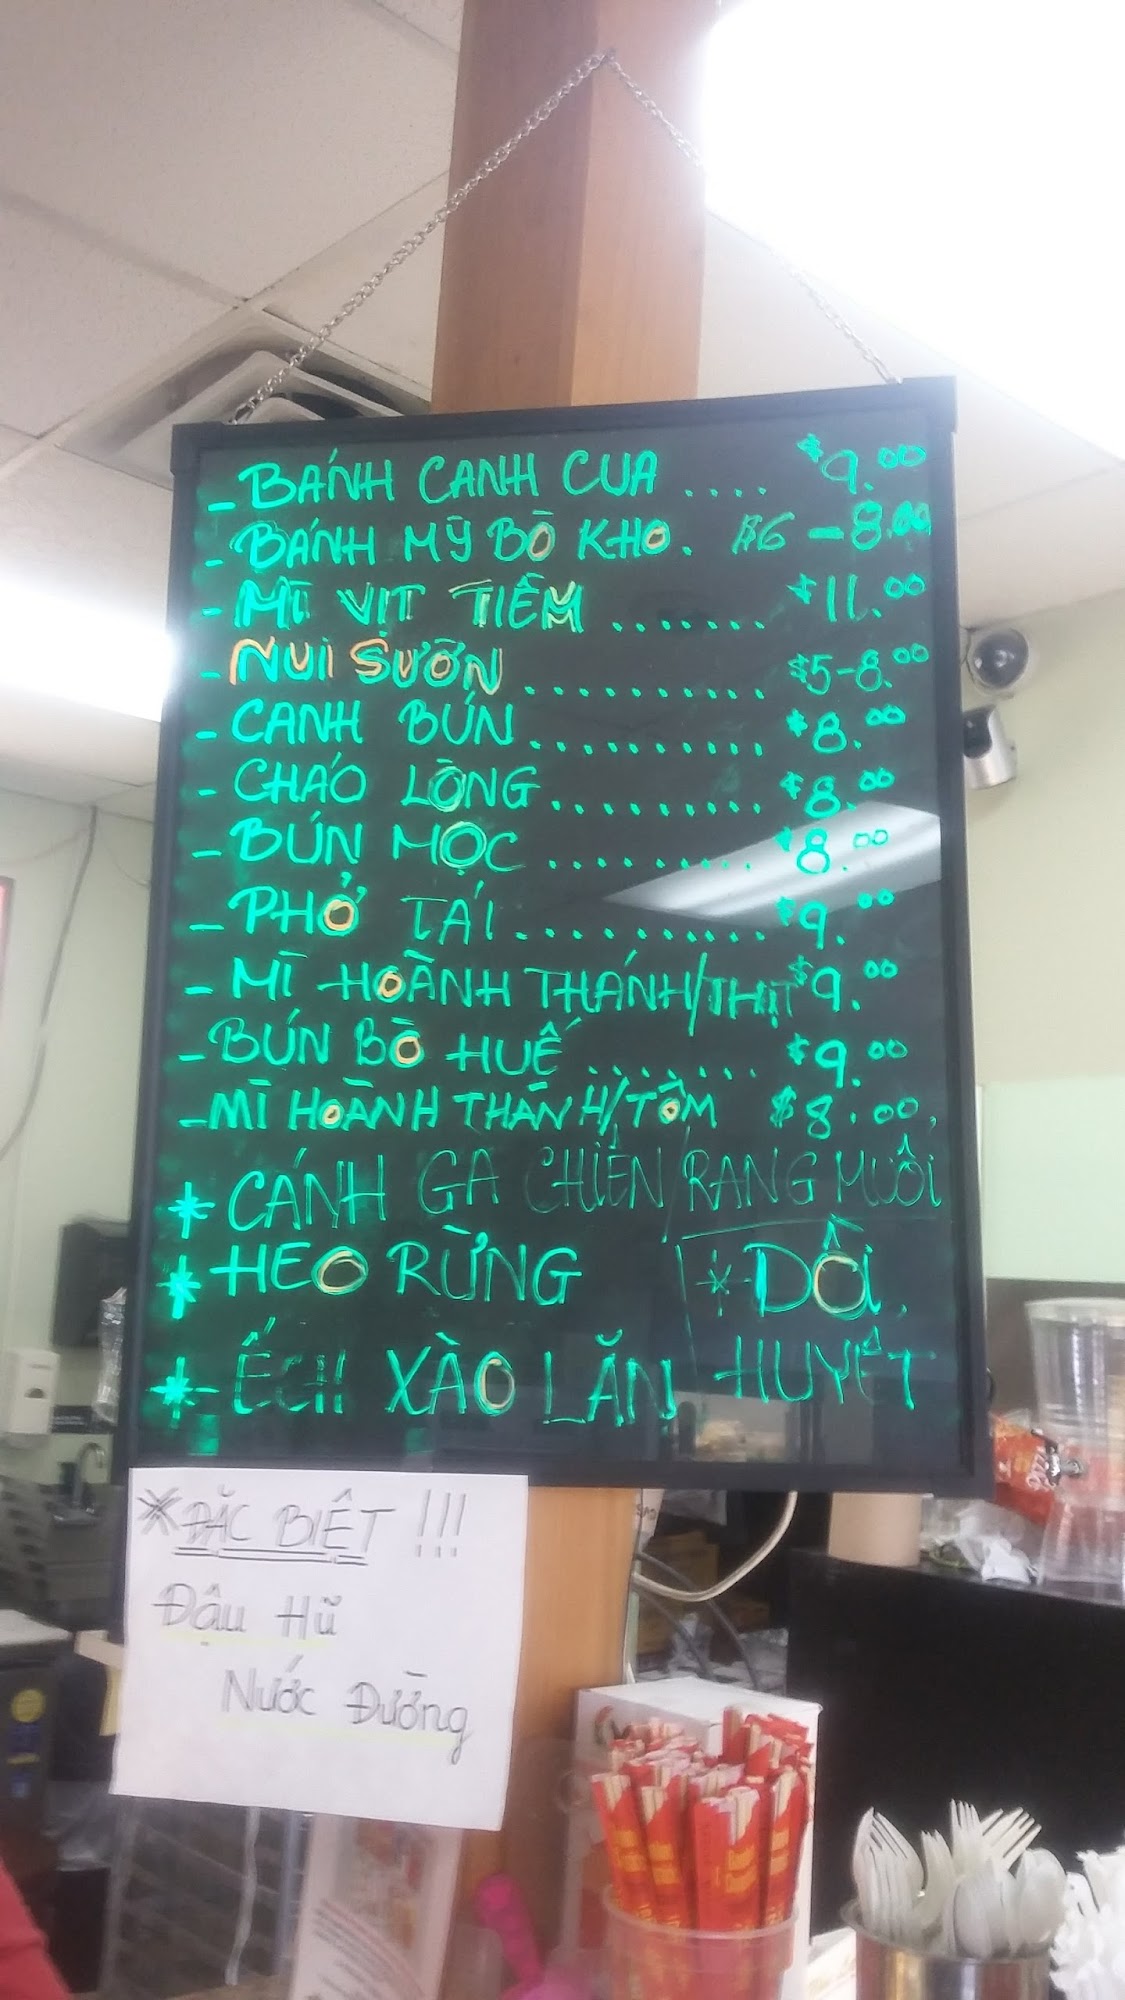 - BÁNH CANH CUA .... $9.00
- BÁNH MỲ BÒ KHO. $6 - 8.00
- MÌ VỊT TIỀM ....... $11.00
- NUI SƯỜN .......... $5-8.00
- CANH BÚN .......... $8.00
- CHÁO LÒNG .......... $8.00
- BÚN MỌC .......... $8.00
- PHỞ TÁI .......... $9.00
- MÌ HOÀNH THÁNH/THỊT $9.00
- BÚN BÒ HUẾ ....... $9.00
- MÌ HOÀNH THÁNH/TÔM $8.00
* CÁNH GA CHIÊN/RANG MUÔI
* HEO RỪNG * DỒI
* ẾCH XÀO LĂN HUYẾT
* ĐẶC BIỆT !!!
Đậu Hũ
Nước Đường